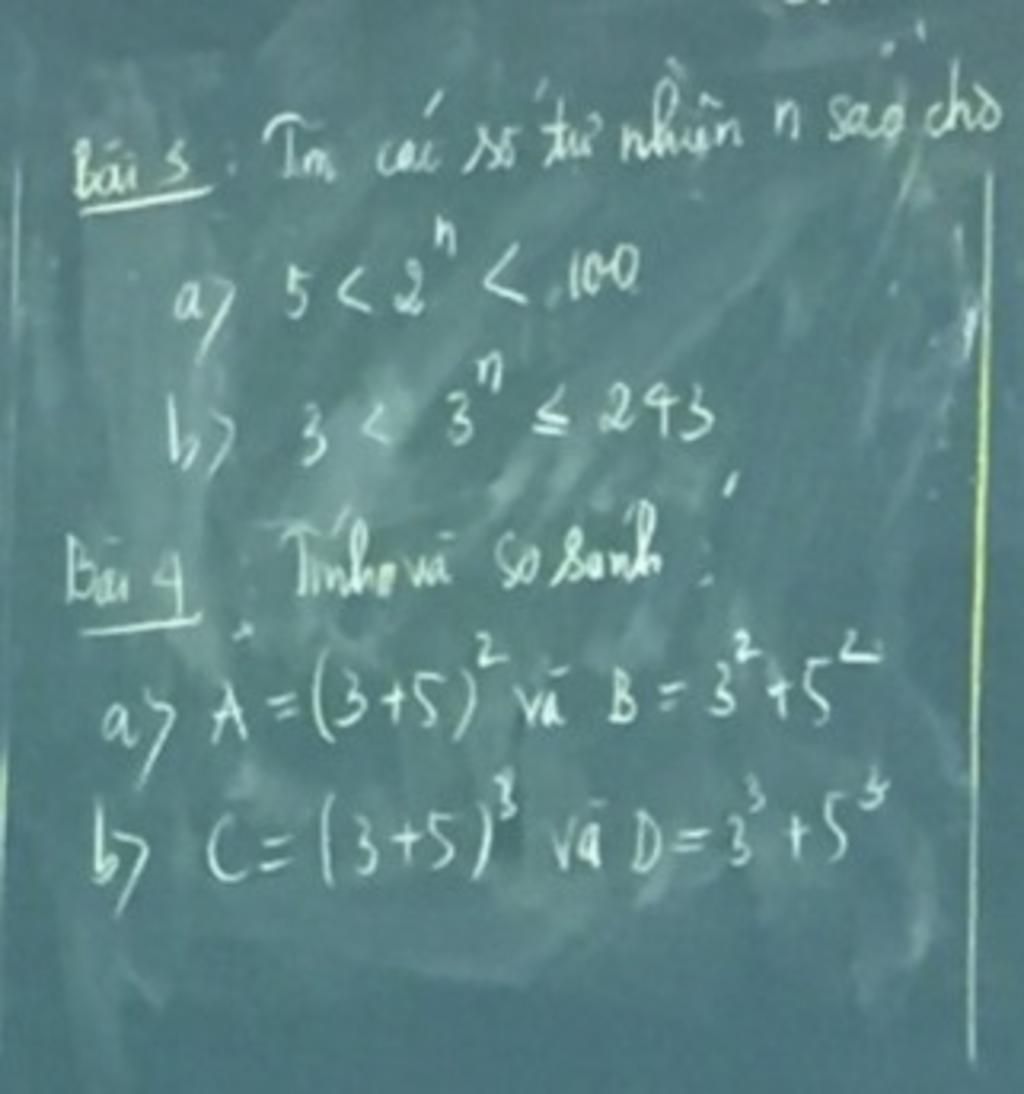 Bài 3 : Tìm các số tự nhiên n sao cho
a) 5 < 2ⁿ < 100
b) 3 < 3ⁿ ≤ 243
Bài 4 : Tính và so sánh :
a) A = (3+5)² và B = 3² + 5²
b) C = (3+5)³ và D = 3³ + 5³